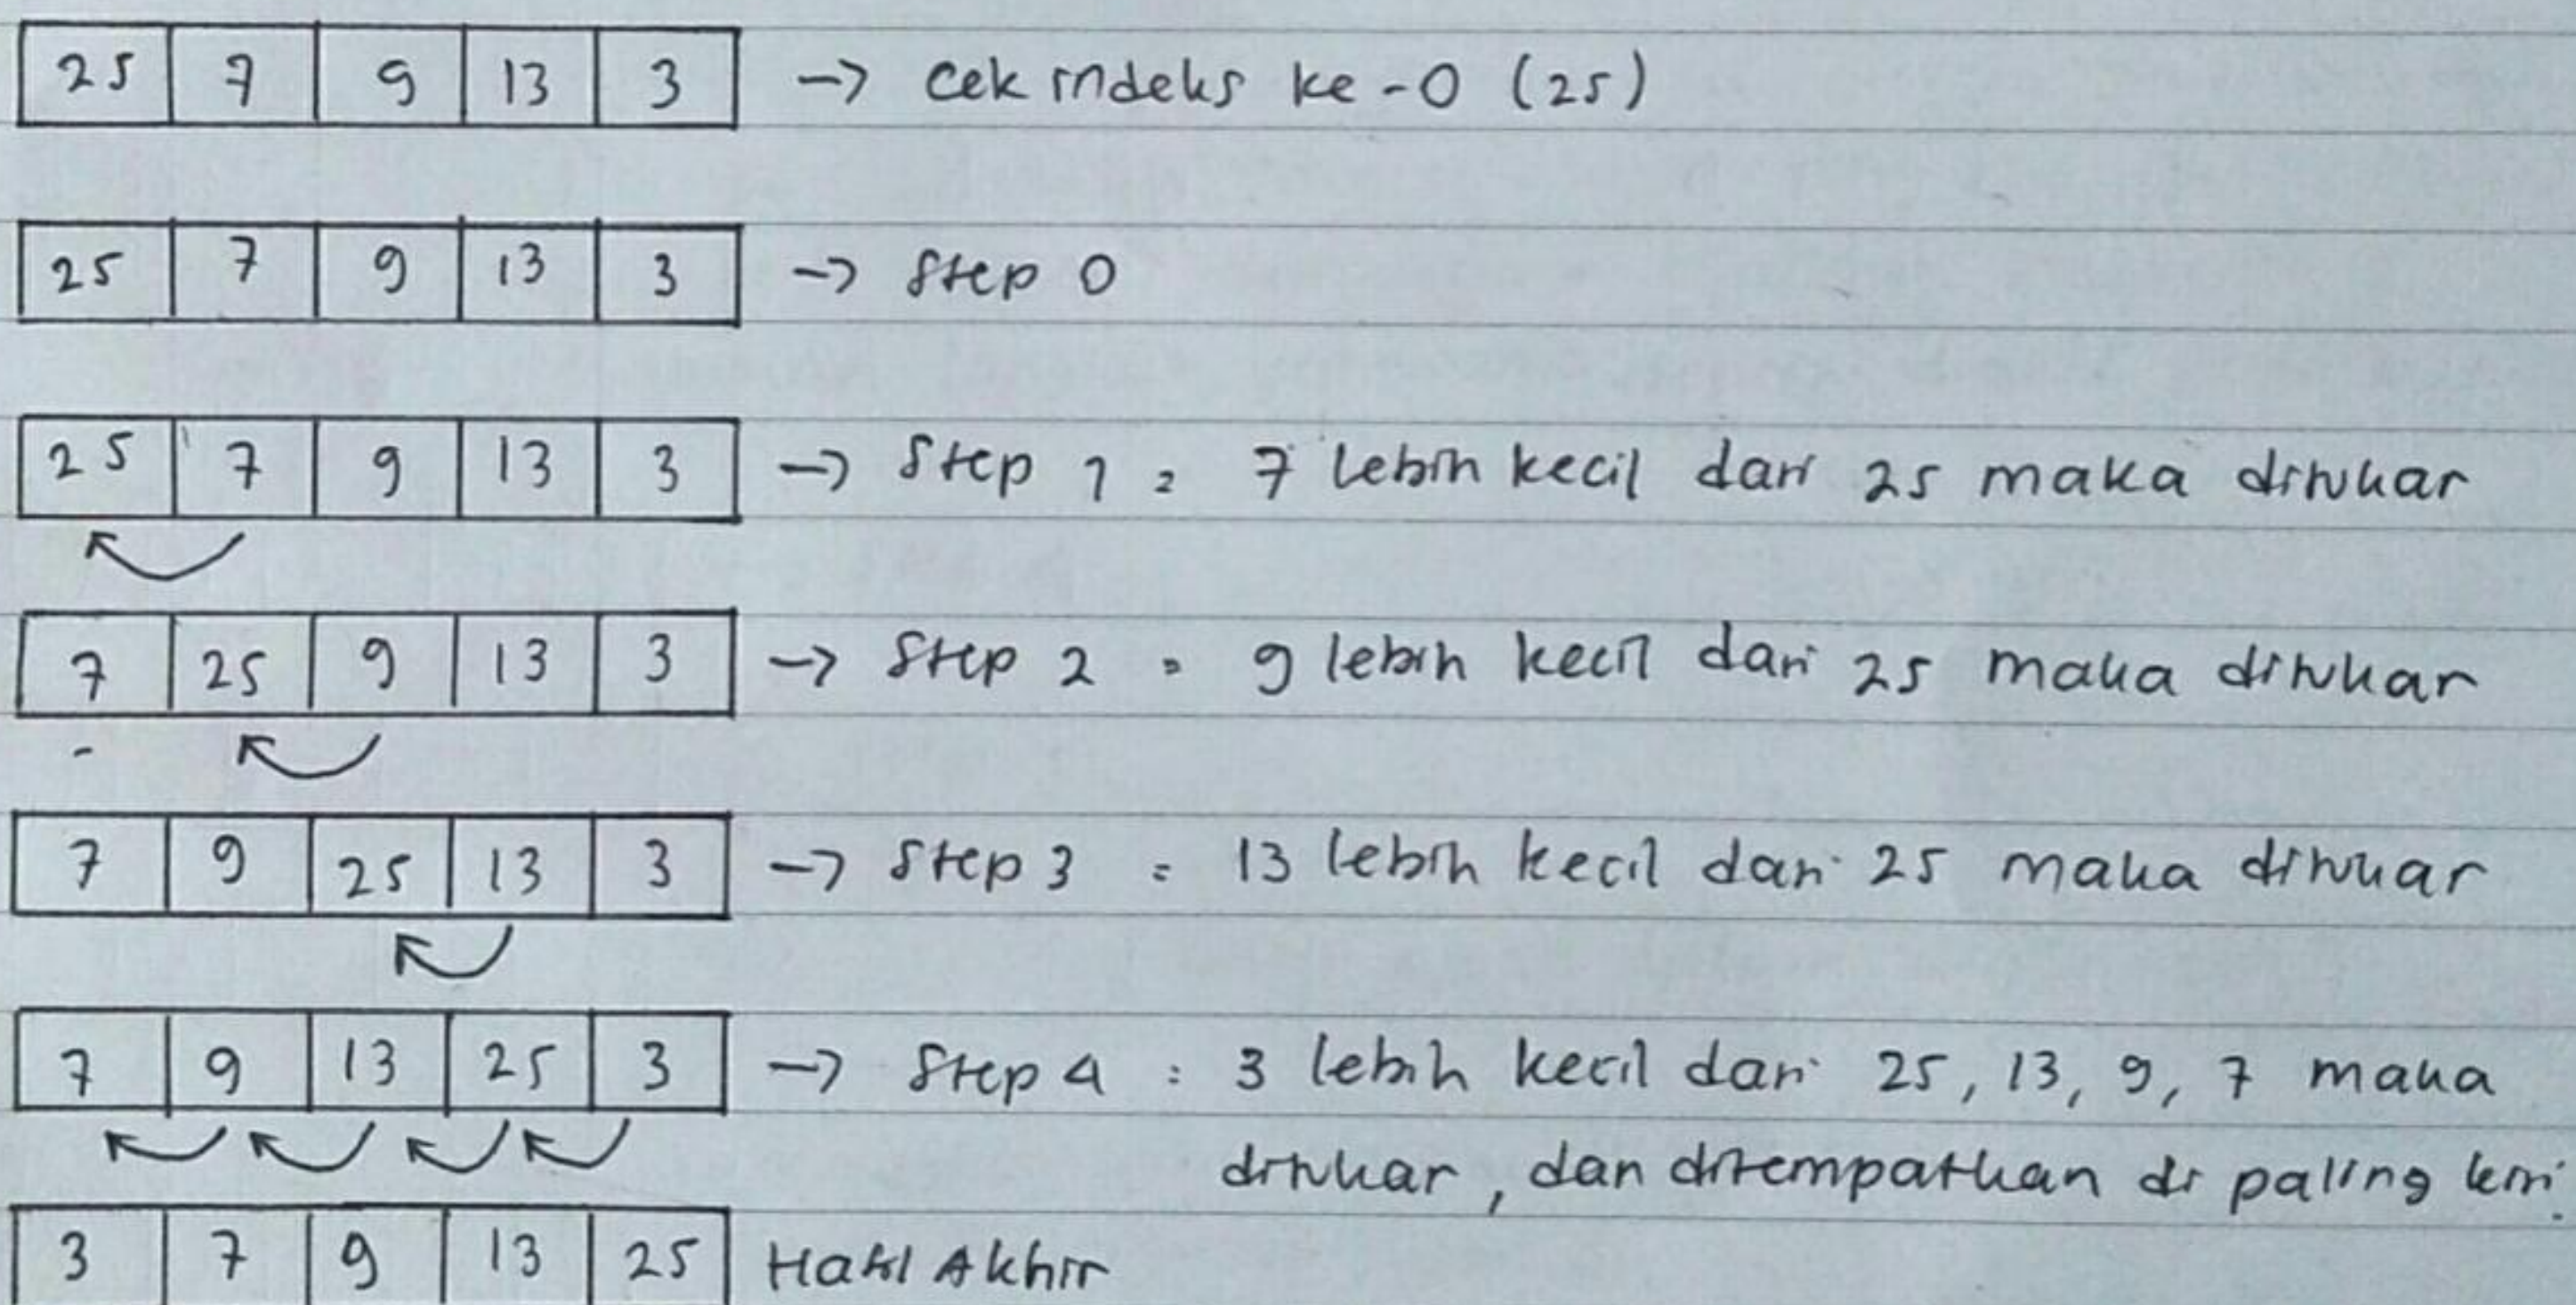 25 7 9 13 3 -> Cek indeks ke-0 (25)
25 7 9 13 3 -> Step 0
25 7 9 13 3 -> Step 1 = 7 lebih kecil dari 25 maka ditukar
7 25 9 13 3 -> Step 2 = 9 lebih kecil dari 25 maka ditukar
7 9 25 13 3 -> Step 3 = 13 lebih kecil dari 25 maka ditukar
7 9 13 25 3 -> Step 4 : 3 lebih kecil dari 25, 13, 9, 7 maka
ditukar, dan ditempatkan di paling kiri.
3 7 9 13 25 Hasil Akhir